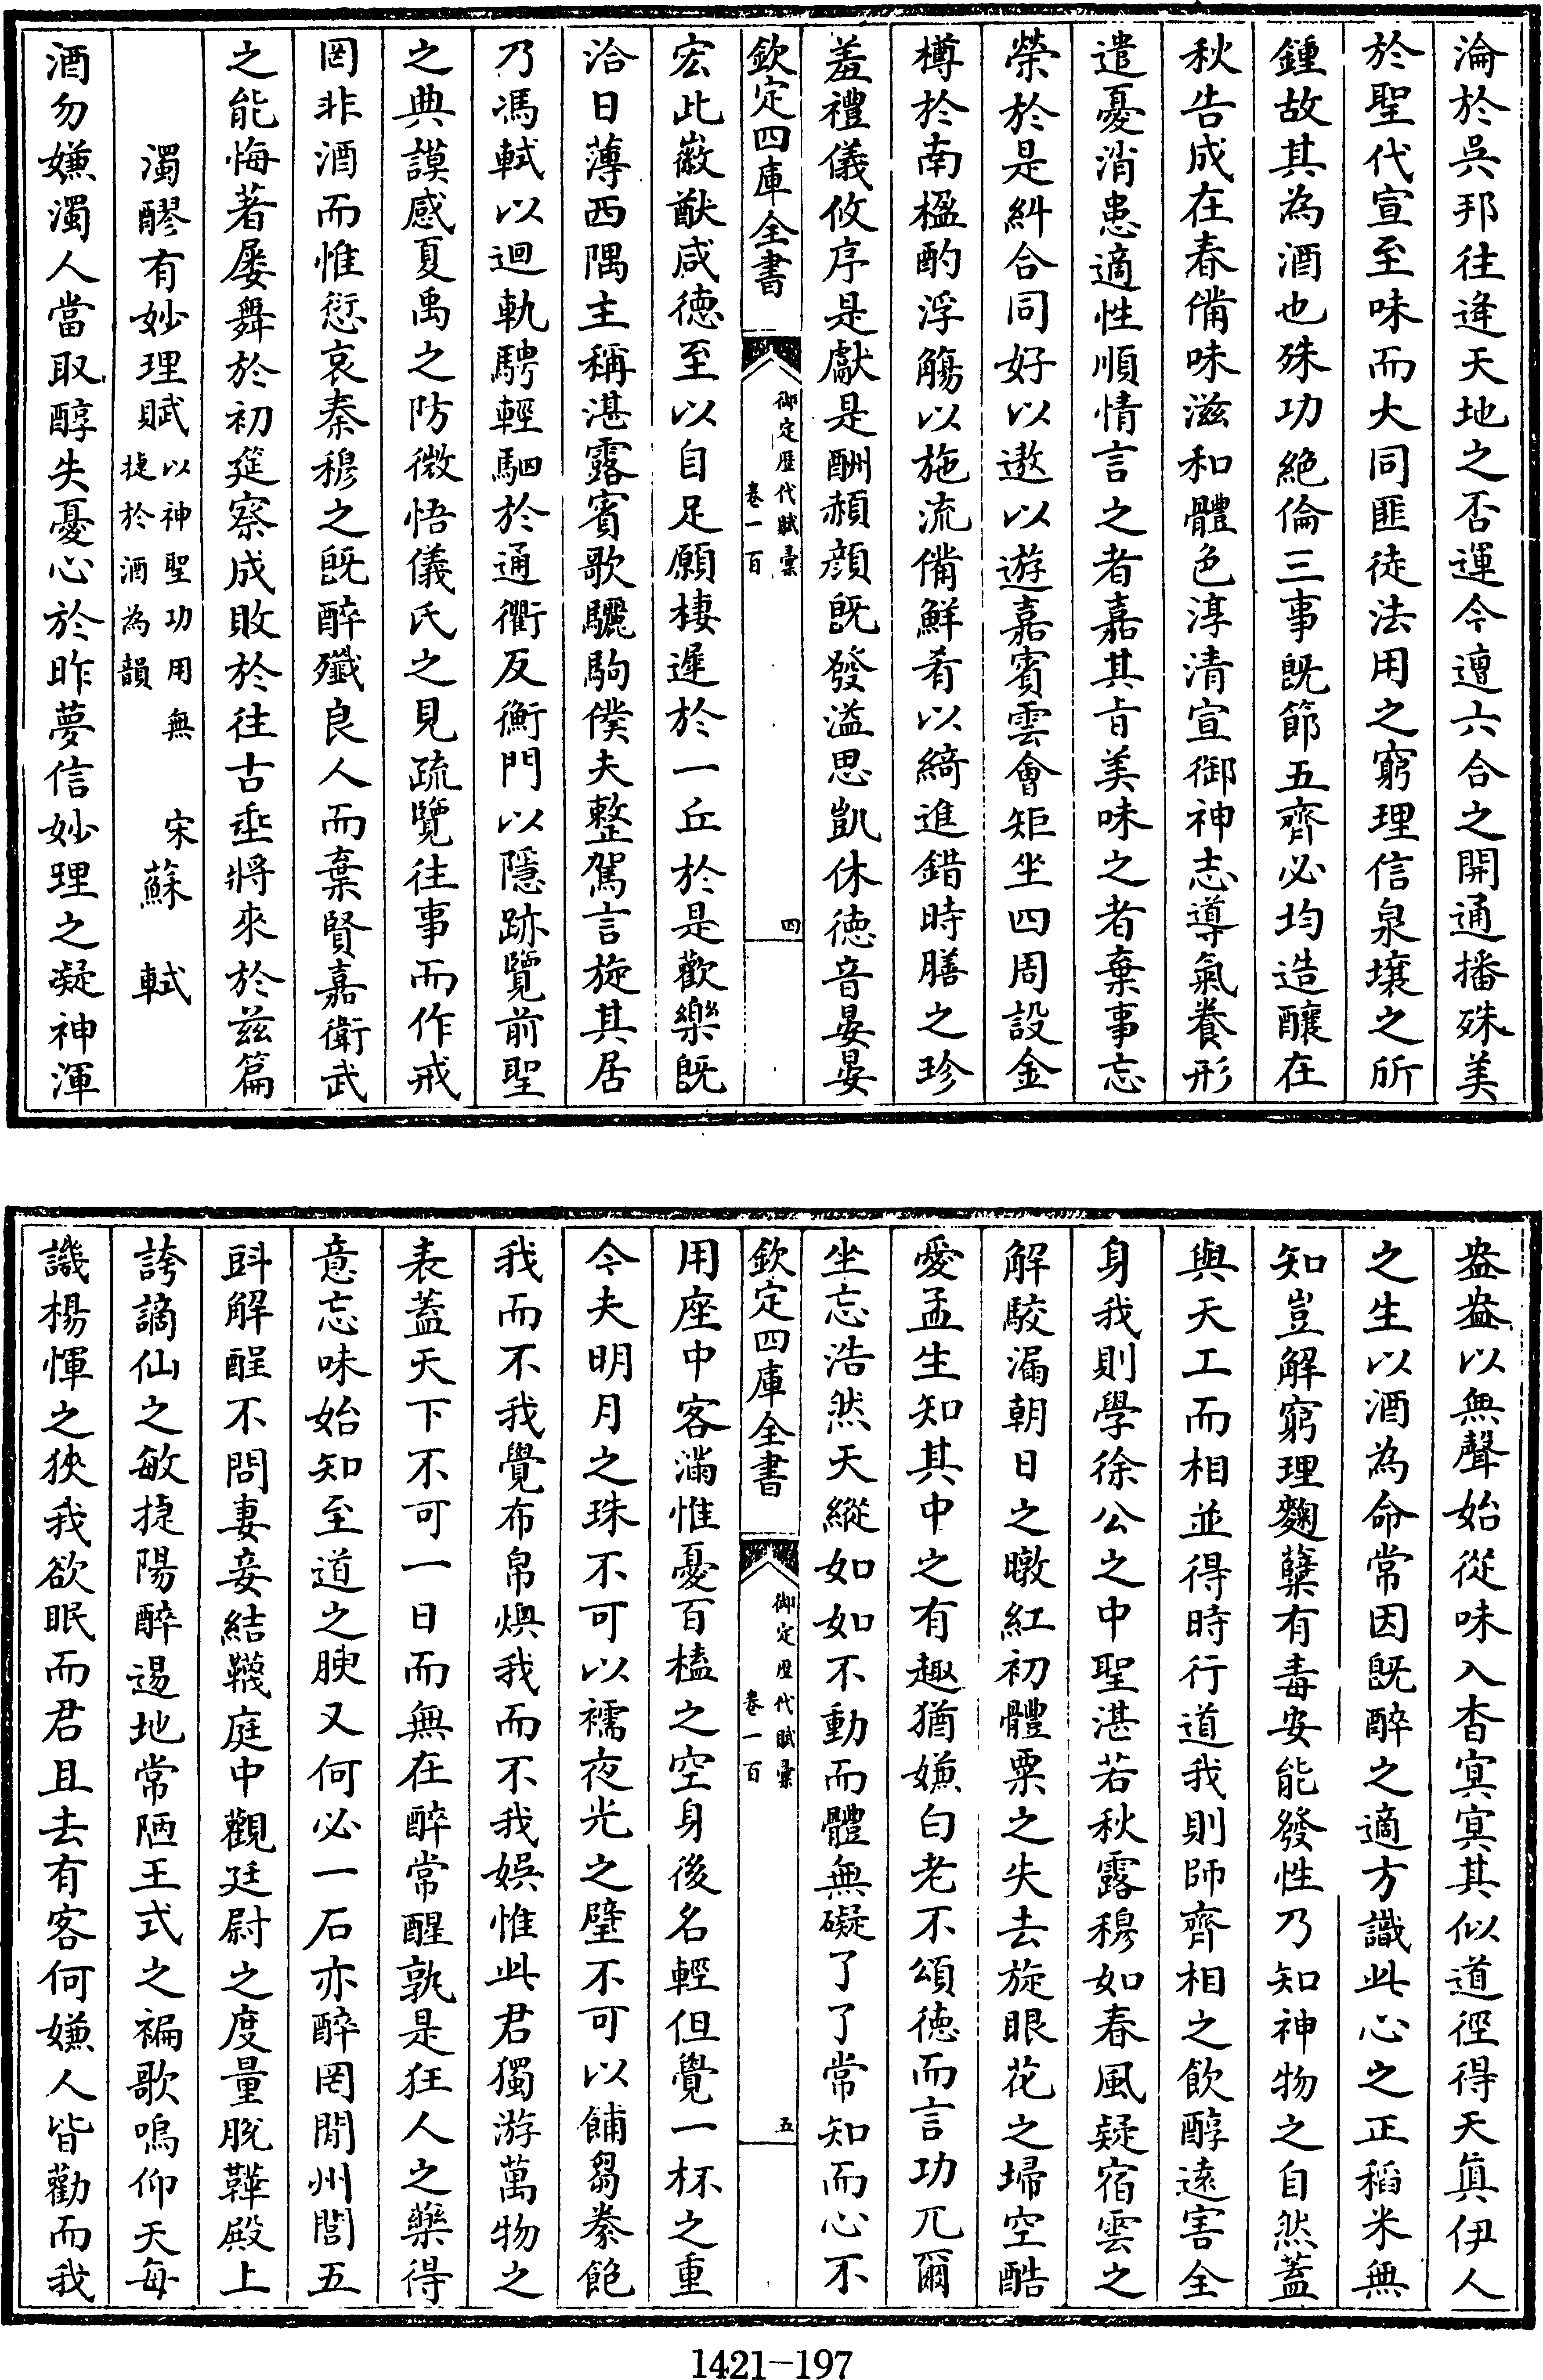 淪於吳邦往逢天地之否運今遭六合之開通播殊美
於聖代宣至味而大同匪徒法用之窮理信泉壤之所
鍾故其為酒也殊功絶倫三事旣節五齊必均造釀在
秋告成在春備味滋和體色淳清宣御神志導氣養形
遣憂消患適性順情言之者嘉其旨美味之者棄事忘
榮於是糾合同好以遨以遊嘉賓雲會矩坐四周設金
樽於南楹酌浮觴以施流備鮮肴以綺進錯時膳之珍
羞禮儀攸序是獻是酬頳顔旣發溢思凱休徳音晏晏
欽定四庫全書 御定歴代賦彙 卷一百 四
宏此徽猷咸德至以自足願棲遲於一丘於是歡樂旣
洽日薄西隅主稱湛露賓歌驪駒僕夫整駕言旋其居
乃馮軾以迴軌騁輕駟於通衢反衡門以隱跡覽前聖
之典謨感夏禹之防微悟儀氏之見疏覽往事而作戒
罔非酒而惟愆哀秦穆之旣醉殲良人而棄賢嘉衛武
之能悔著屢舞於初筵察成敗於往古垂將來於兹篇
濁醪有妙理賦 以神聖功用無捷於酒為韻 宋蘇軾
酒勿嫌濁人當取醇失憂心於昨夢信妙理之凝神渾
盎盎以無聲始從味入杳冥冥其似道徑得天真伊人
之生以酒為命常因旣醉之適方識此心之正稻米無
知豈解窮理麴糵有毒安能發性乃知神物之自然蓋
與天工而相並得時行道我則師齊相之飲醇遠害全
身我則學徐公之中聖湛若秋露穆如春風疑宿雲之
解駮漏朝日之暾紅初體粟之失去旋眼花之埽空酷
愛孟生知其中之有趣猶嫌白老不頌徳而言功兀爾
坐忘浩然天縱如如不動而體無礙了了常知而心不
欽定四庫全書 御定歴代賦彙 卷一百 五
用座中客滿惟憂百榼之空身後名輕但覺一杯之重
今夫明月之珠不可以襦夜光之璧不可以餔芻豢飽
我而不我覺布帛燠我而不我娯惟此君獨游萬物之
表蓋天下不可一日而無在醉常醒孰是狂人之藥得
意忘味始知至道之腴又何必一石亦醉罔間州閭五
㪷解酲不問妻妾結韈庭中觀廷尉之度量脫鞾殿上
誇謫仙之敏捷陽醉逿地常陋王式之褊歌嗚仰天每
譏楊惲之狹我欲眠而君且去有客何嫌人皆勸而我
1421-197